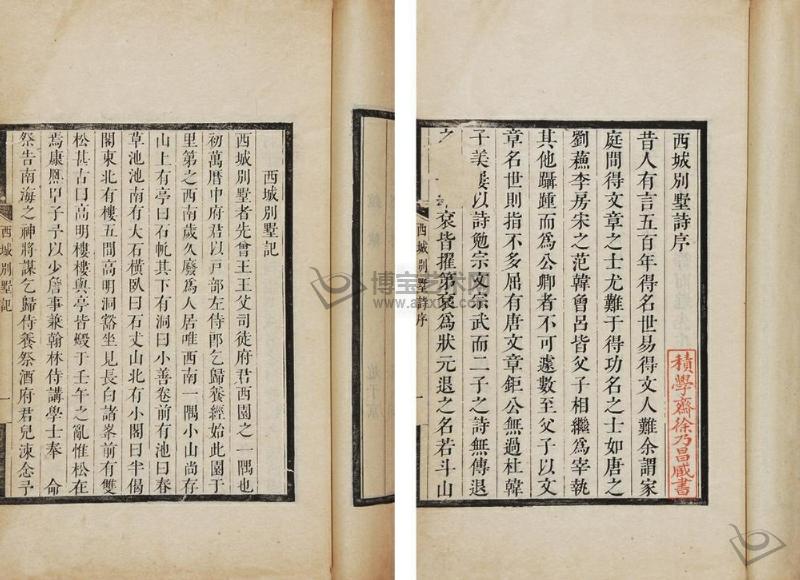 西城別墅詩序
昔人有言五百年得名世易得文人難余謂家
庭間得文章之士尤難于得功名之士如唐之
劉蘓李房宋之范韓曾呂皆父子相繼為宰執
其他躡踵而為公卿者不可遽數至父子以文
章名世則指不多屈有唐文章鉅公無過杜韓
子美以詩勉宗文宗武而二子之詩無傳退
之 袞皆擢第袞為狀元退之名若斗山
積學齋徐乃昌藏書
西城別墅詩序
一
西城別墅記
西城別墅者先曾王王父司徒府君西園之一隅也
初萬曆中府君以戶部左侍郎乞歸養經始此園于
里第之西南歲久廢為人居唯西南一隅小山尚存
山上有亭曰石帆其下有洞曰小善卷前有池曰春
草池池南有大石橫臥曰石丈山北有小閣曰半偈
閣東北有樓五間高明洞豁坐見長白諸峯前有雙
松甚古曰高明樓樓與亭皆燬于壬午之亂惟松在
焉康熈甲子予以少詹事兼翰林侍講學士奉 命
祭告南海之神將謀乞歸侍養祭酒府君兒涑念予
西城別墅記
一
博宝艺术网